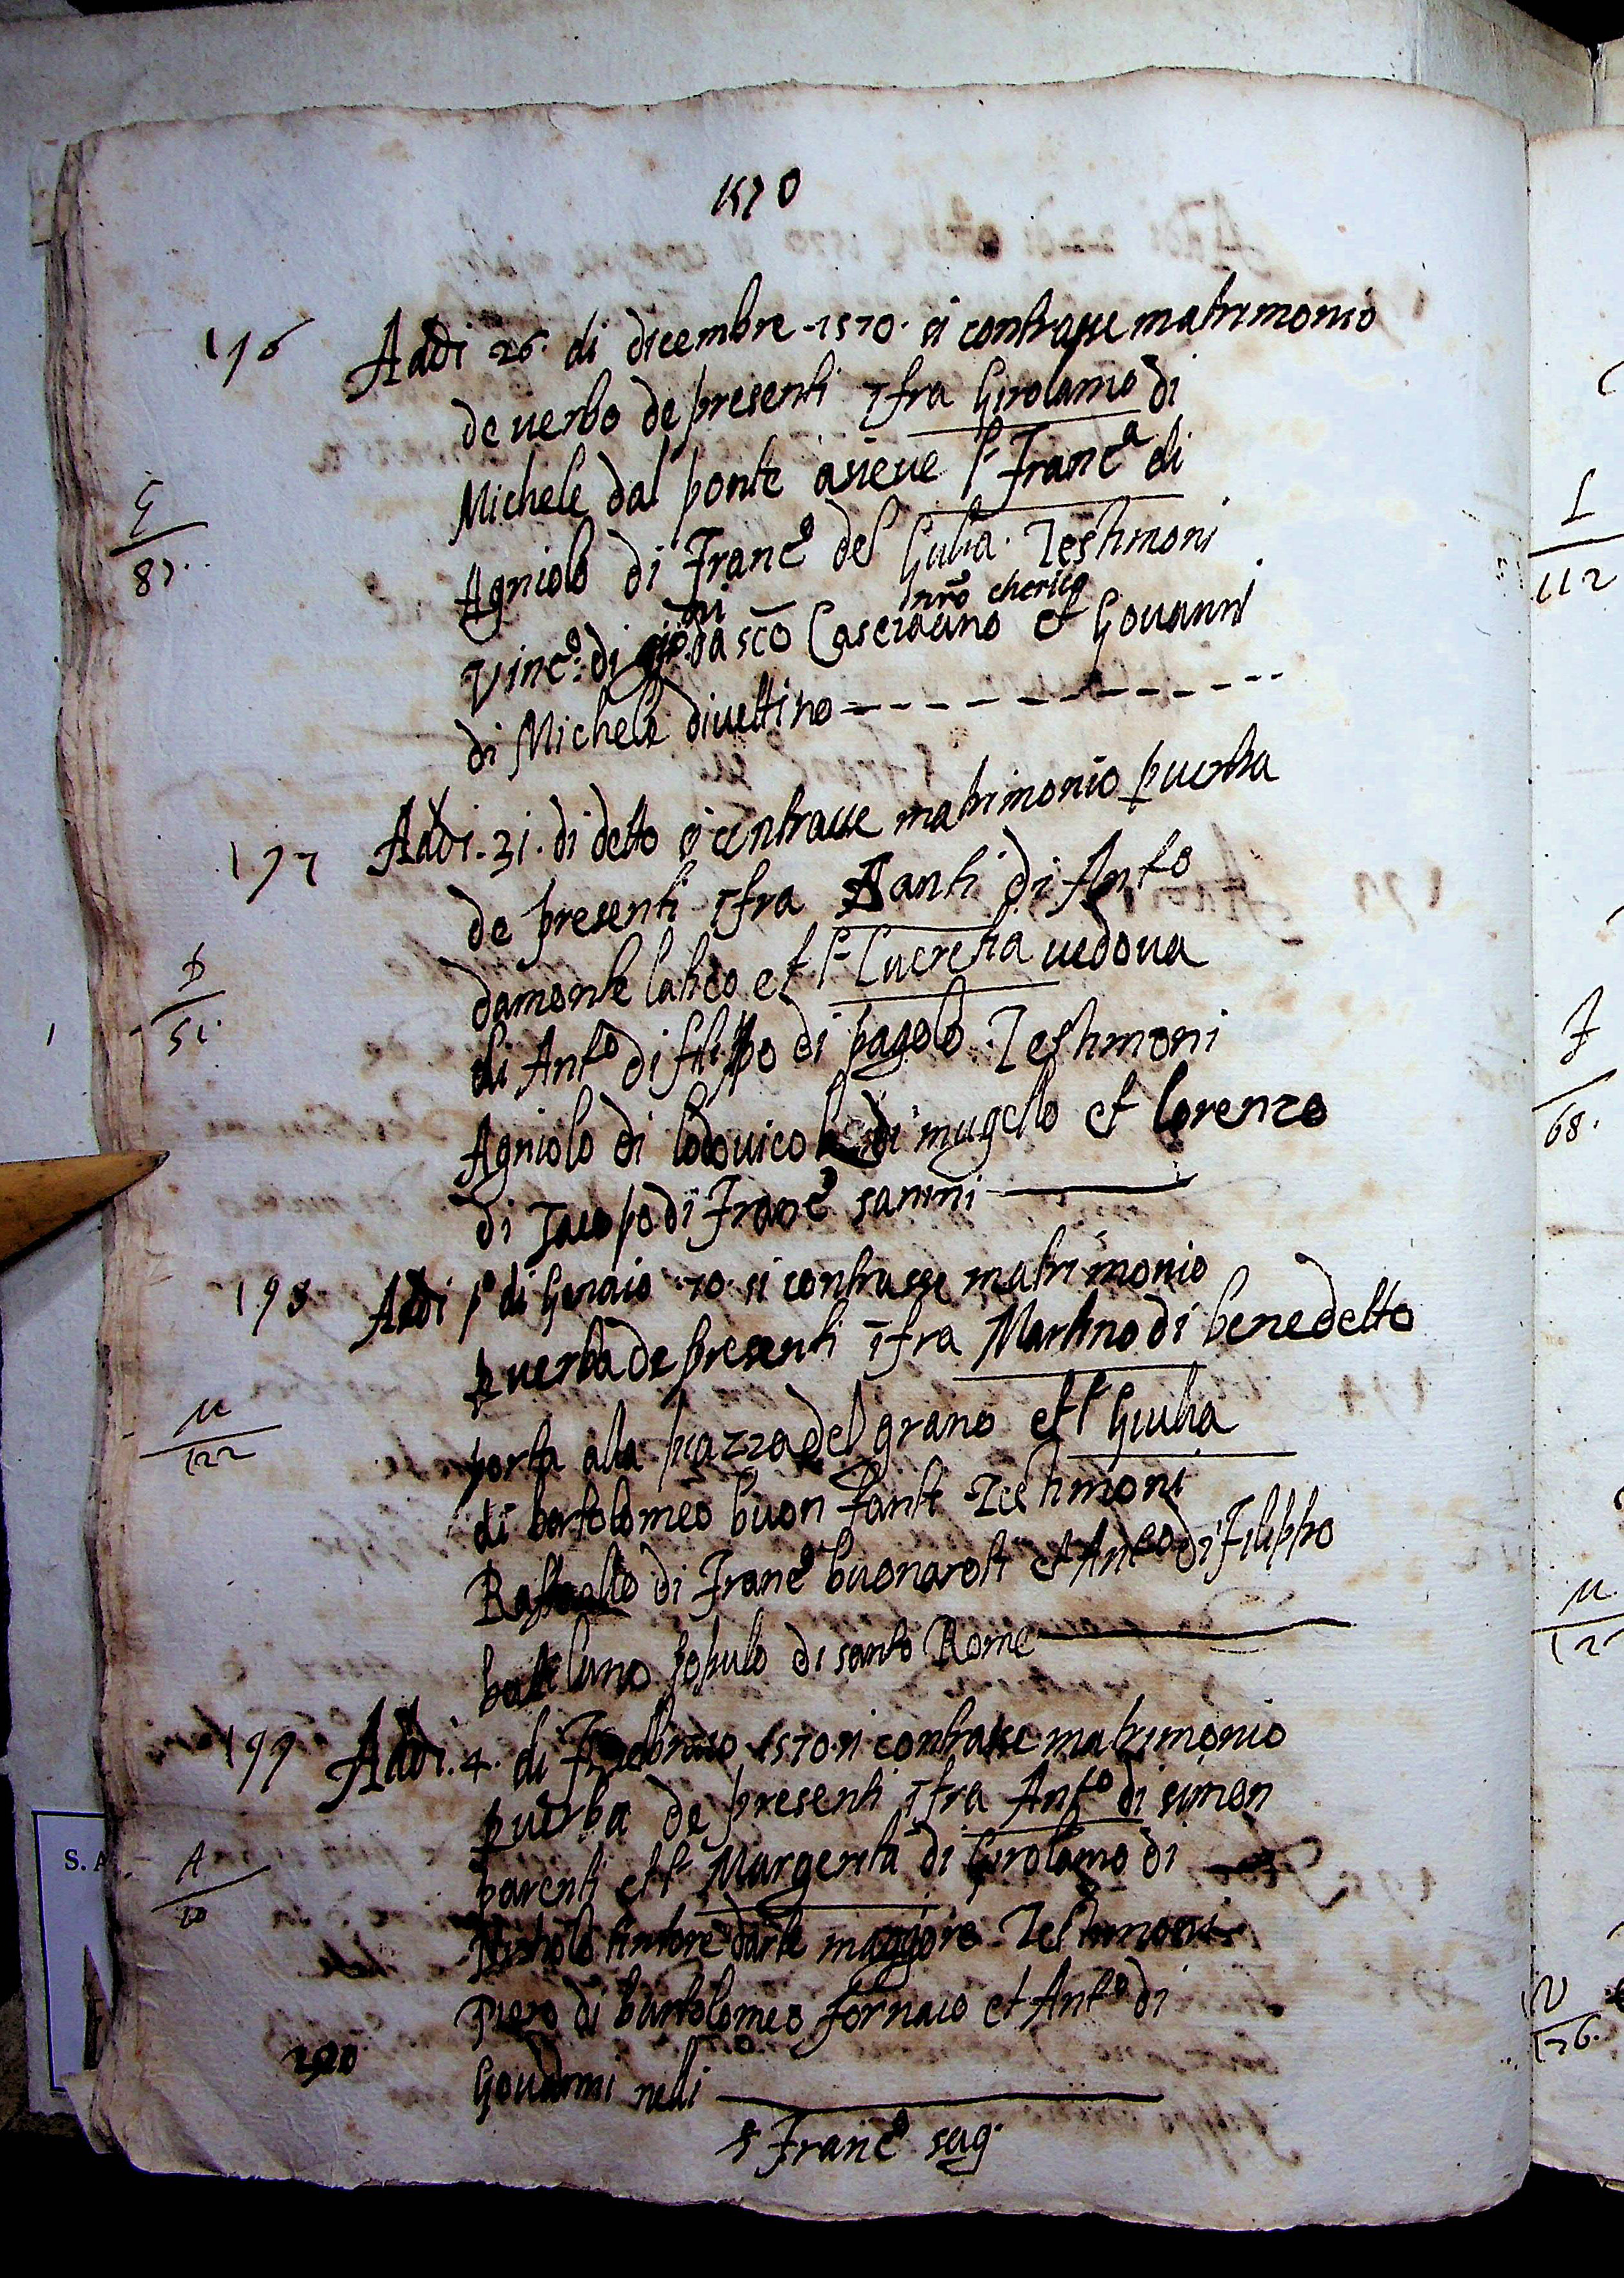 1570
196 Addi 26 di dicembre 1570 si contrasse matrimonio
de verbo de presenti ifra Girolamo di
Michele dal ponte asieve la Franca di
G
87
Agniolo di Franco del Giulia Testimoni
nro cherico
Vinco di da sco Casciano et Giovanni
di Michele
197 Addi 31 di detto si contrasse matrimonio p verba
de presenti ifra Santi di Anto
et la Lucretia vedova
S
51
di Anto di filippo di pagolo Testimoni
Agniolo di lodovico di mugello et lorenzo
di Jacopo di Franco
198 Addi po di Genaio 70 si contrasse matrimonio
p verba de presenti ifra Martino di benedetto
M
122
porta alla piazza del grano et la Giulia
di bartolomeo buon fanti Testimoni
Raffaello di Franco buonaroti et Anto di Filippo
populo di santo Romeo
199 Addi 4 di Febraio 1570 si contrasse matrimonio
p verba de presenti ifra Anto di simon
parenti et la Margerita di Girolamo di
A
10
Nicholo tintore darte maggiore Testimoni
Piero di bartolomeo fornaio et Anto di
200
Giovanni nelli
s Franco
L
112
J
68
M
12
N
126
S. A